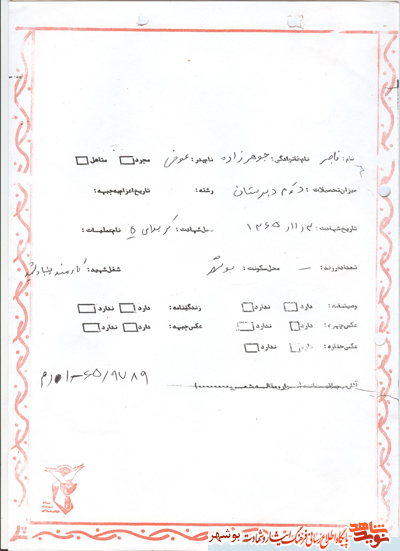 نام: ناصر نام خانوادگی: جوهرزاده نام پدر: عوض مجرد متاهل
میزان تحصیلات: دوم دبیرستان رشته: تاریخ اعزام به جبهه:
تاریخ شهادت: محل شهادت: کربلای ۵ نام عملیات:
تعداد فرزند: – محل سکونت: بوشهر شغل شهید: کارمند بنیاد شهید
وصیتنامه: دارد ندارد زندگینامه: دارد ندارد
عکس چهره: دارد ندارد عکس جبهه: دارد ندارد
عکس جنازه: دارد ندارد
پایگاه اطلاع رسانی فرهنگ ایثار و شهادت بوشهر
نوید شاهد